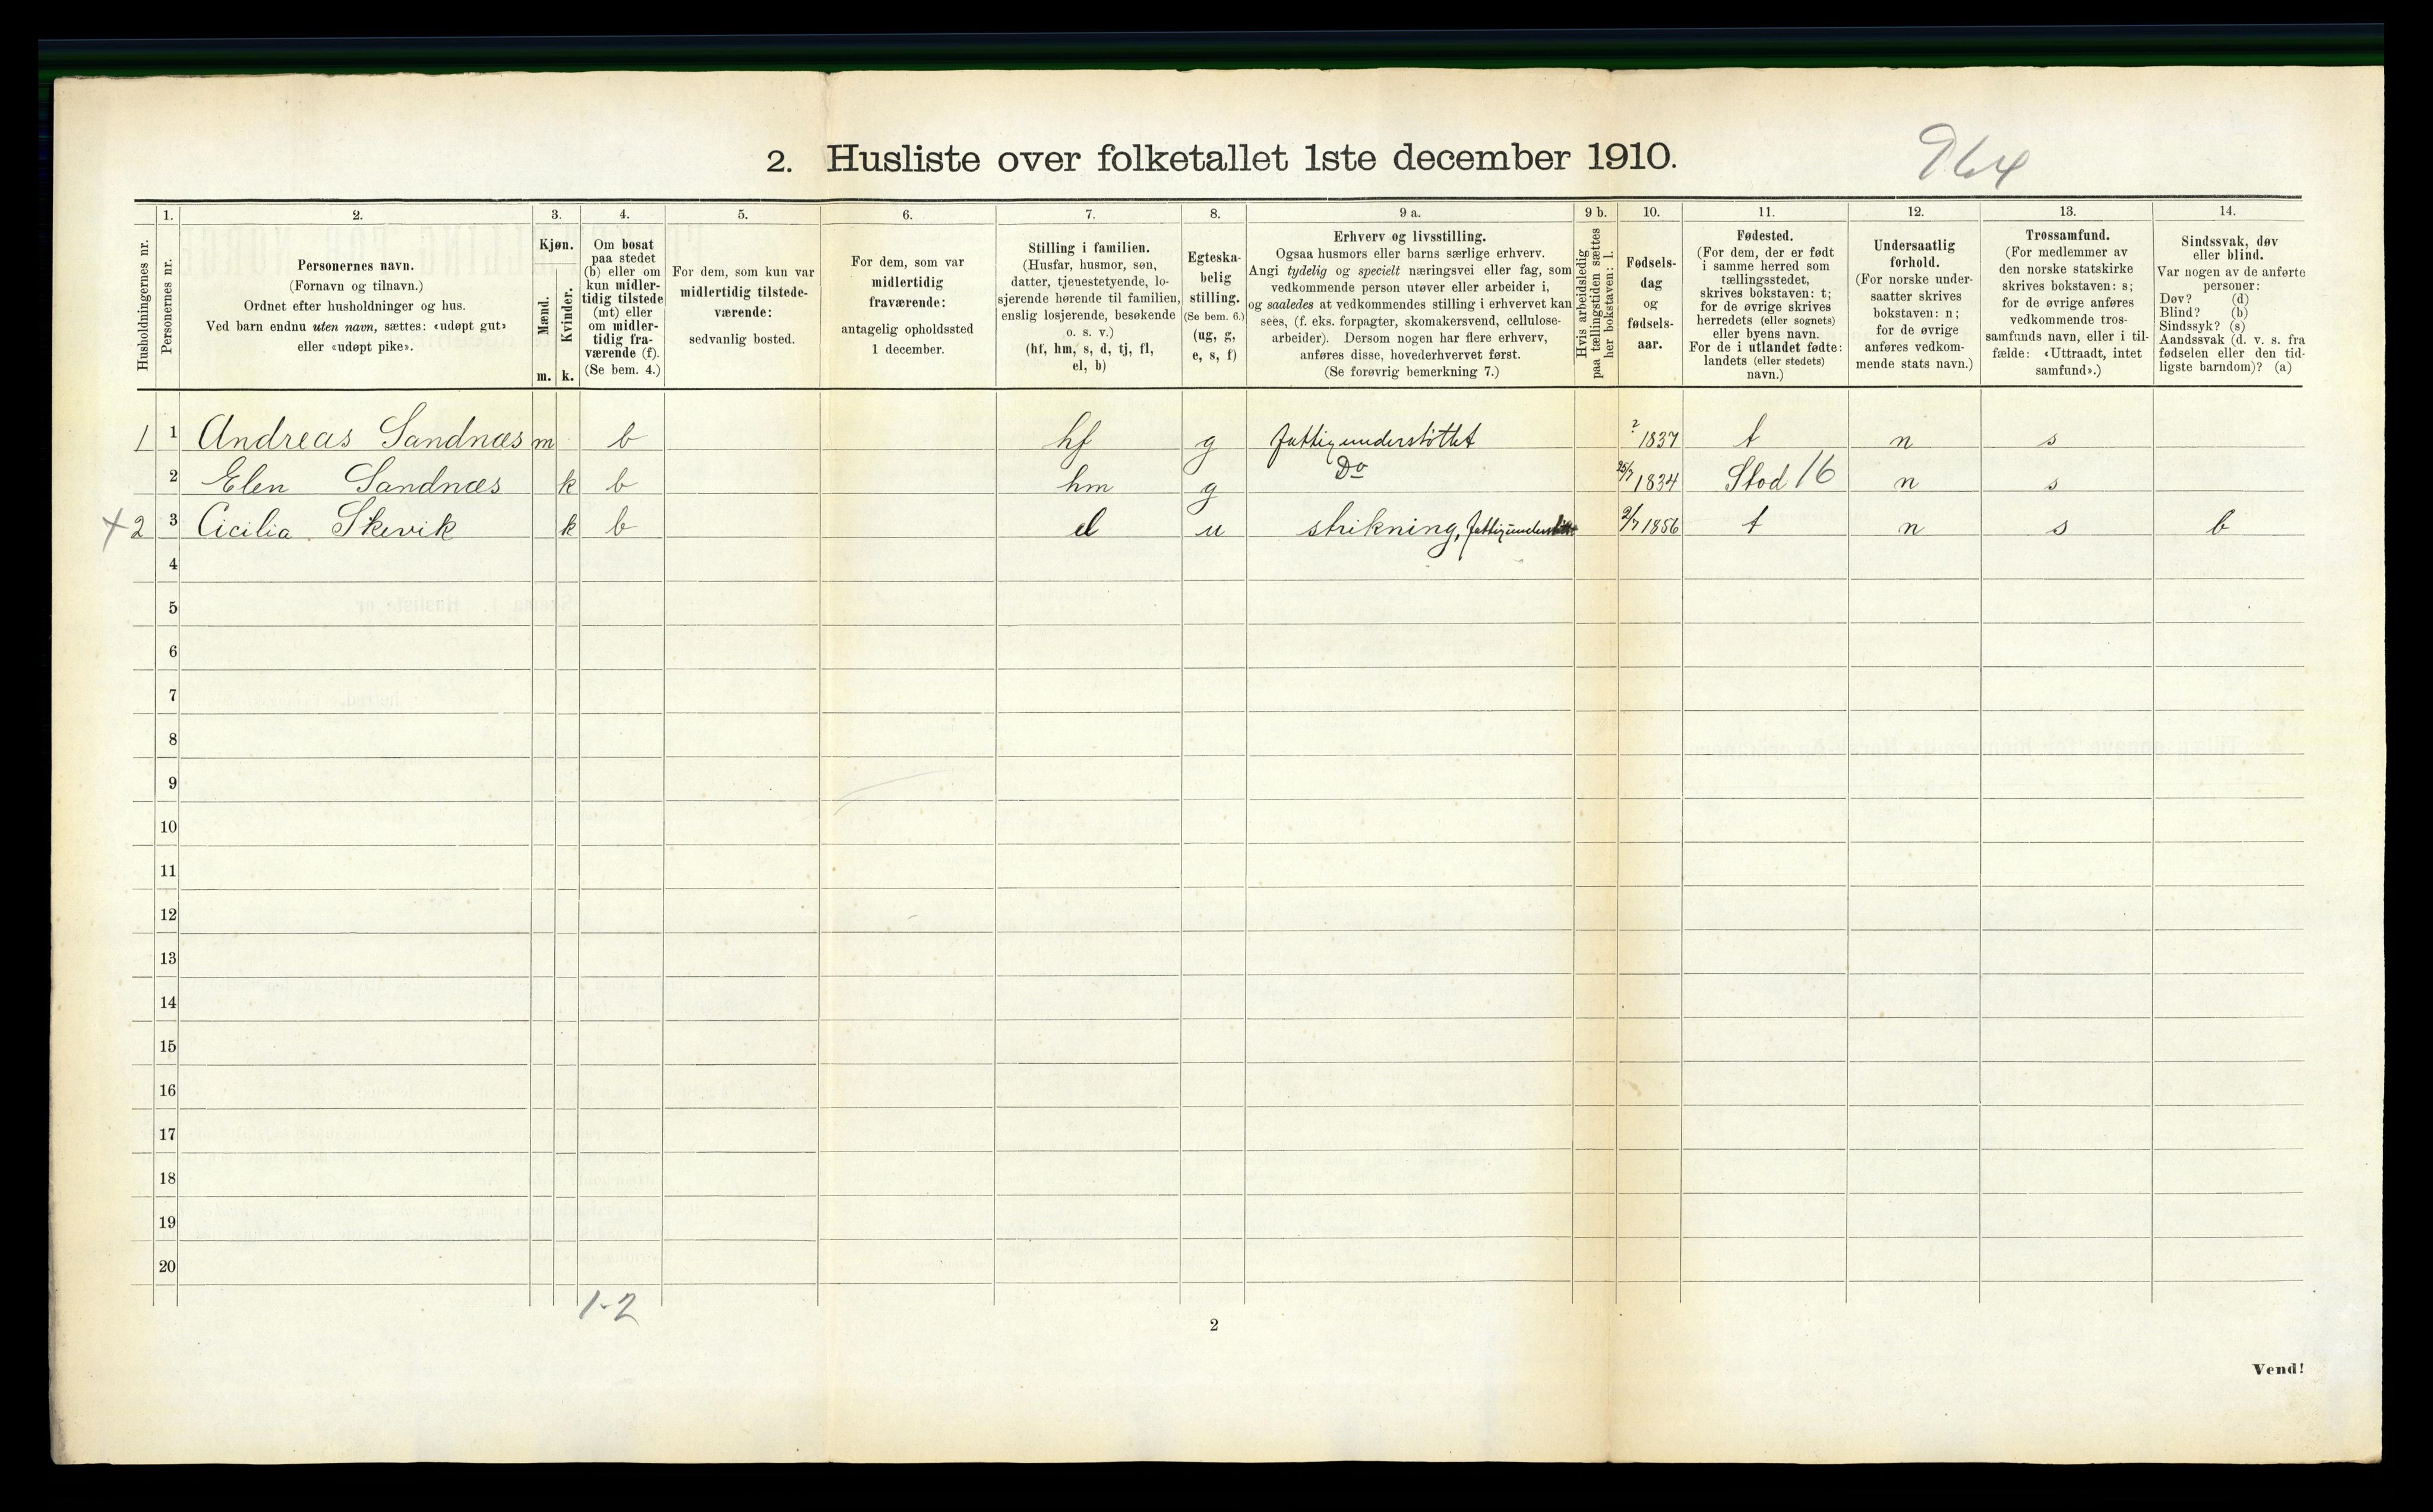 2. Husliste over folketallet 1ste december 1910.
964
1. 2. 3. 4. 5. 6. 7. 8. 9 a. 9 b. 10. 11. 12. 13. 14.
Husholdningernes nr.
Personernes nr.
Personernes navn.
(Fornavn og tilnavn.)
Ordnet efter husholdninger og hus.
Ved barn endnu uten navn, sættes: «udøpt gut»
eller «udøpt pike».
Kjøn.
Mænd.
Kvinder.
m. k.
Om bosat
paa stedet
(b) eller om
kun midler-
tidig tilstede
(mt) eller
om midler-
tidig fra-
værende (f).
(Se bem. 4.)
For dem, som kun var
midlertidig tilstede-
værende:
sedvanlig bosted.
For dem, som var
midlertidig
fraværende:
antagelig opholdssted
1 december.
Stilling i familien.
(Husfar, husmor, søn,
datter, tjenestetyende, lo-
sjerende hørende til familien,
enslig losjerende, besøkende
o. s. v.)
(hf, hm, s, d, tj, fl,
el, b)
Egteska-
belig
stilling.
(Se bem. 6.)
(ug, g,
e, s, f)
Erhverv og livsstilling.
Ogsaa husmors eller barns særlige erhverv.
Angi tydelig og specielt næringsvei eller fag, som
vedkommende person utøver eller arbeider i,
og saaledes at vedkommendes stilling i erhvervet kan
sees, (f. eks. forpagter, skomakersvend, cellulose-
arbeider). Dersom nogen har flere erhverv,
anføres disse, hovederhvervet først.
(Se forøvrig bemerkning 7.)
Hvis arbeidsledig
paa tællingstiden sættes
her bokstaven: l.
Fødsels-
dag
og
fødsels-
aar.
Fødested.
(For dem, der er født
i samme herred som
tællingsstedet,
skrives bokstaven: t;
for de øvrige skrives
herredets (eller sognets)
eller byens navn.
For de i utlandet fødte:
landets (eller stedets)
navn.)
Undersaatlig
forhold.
(For norske under-
saatter skrives
bokstaven: n;
for de øvrige
anføres vedkom-
mende stats navn.)
Trossamfund.
(For medlemmer av
den norske statskirke
skrives bokstaven: s;
for de øvrige anføres
vedkommende tros-
samfunds navn, eller i til-
fælde: «Uttraadt, intet
samfund».)
Sindssvak, døv
eller blind.
Var nogen av de anførte
personer:
Døv? (d)
Blind? (b)
Sindssyk? (s)
Aandssvak (d. v. s. fra
fødselen eller den tid-
ligste barndom)? (a)
1 1 Andreas Sandnæs m b hf g fattigunderstøttet ? 1837 t n s
2 Elen Sandnæs k b hm g Do 25/7 1834 Stod 16 n s
+ 2 3 Cicilia Skevik k b el u strikning, fattigunderstøtt 2/7 1856 t n s b
4
5
6
7
8
9
10
11
12
13
14
15
16
17
18
19
20
1-2
2
Vend!